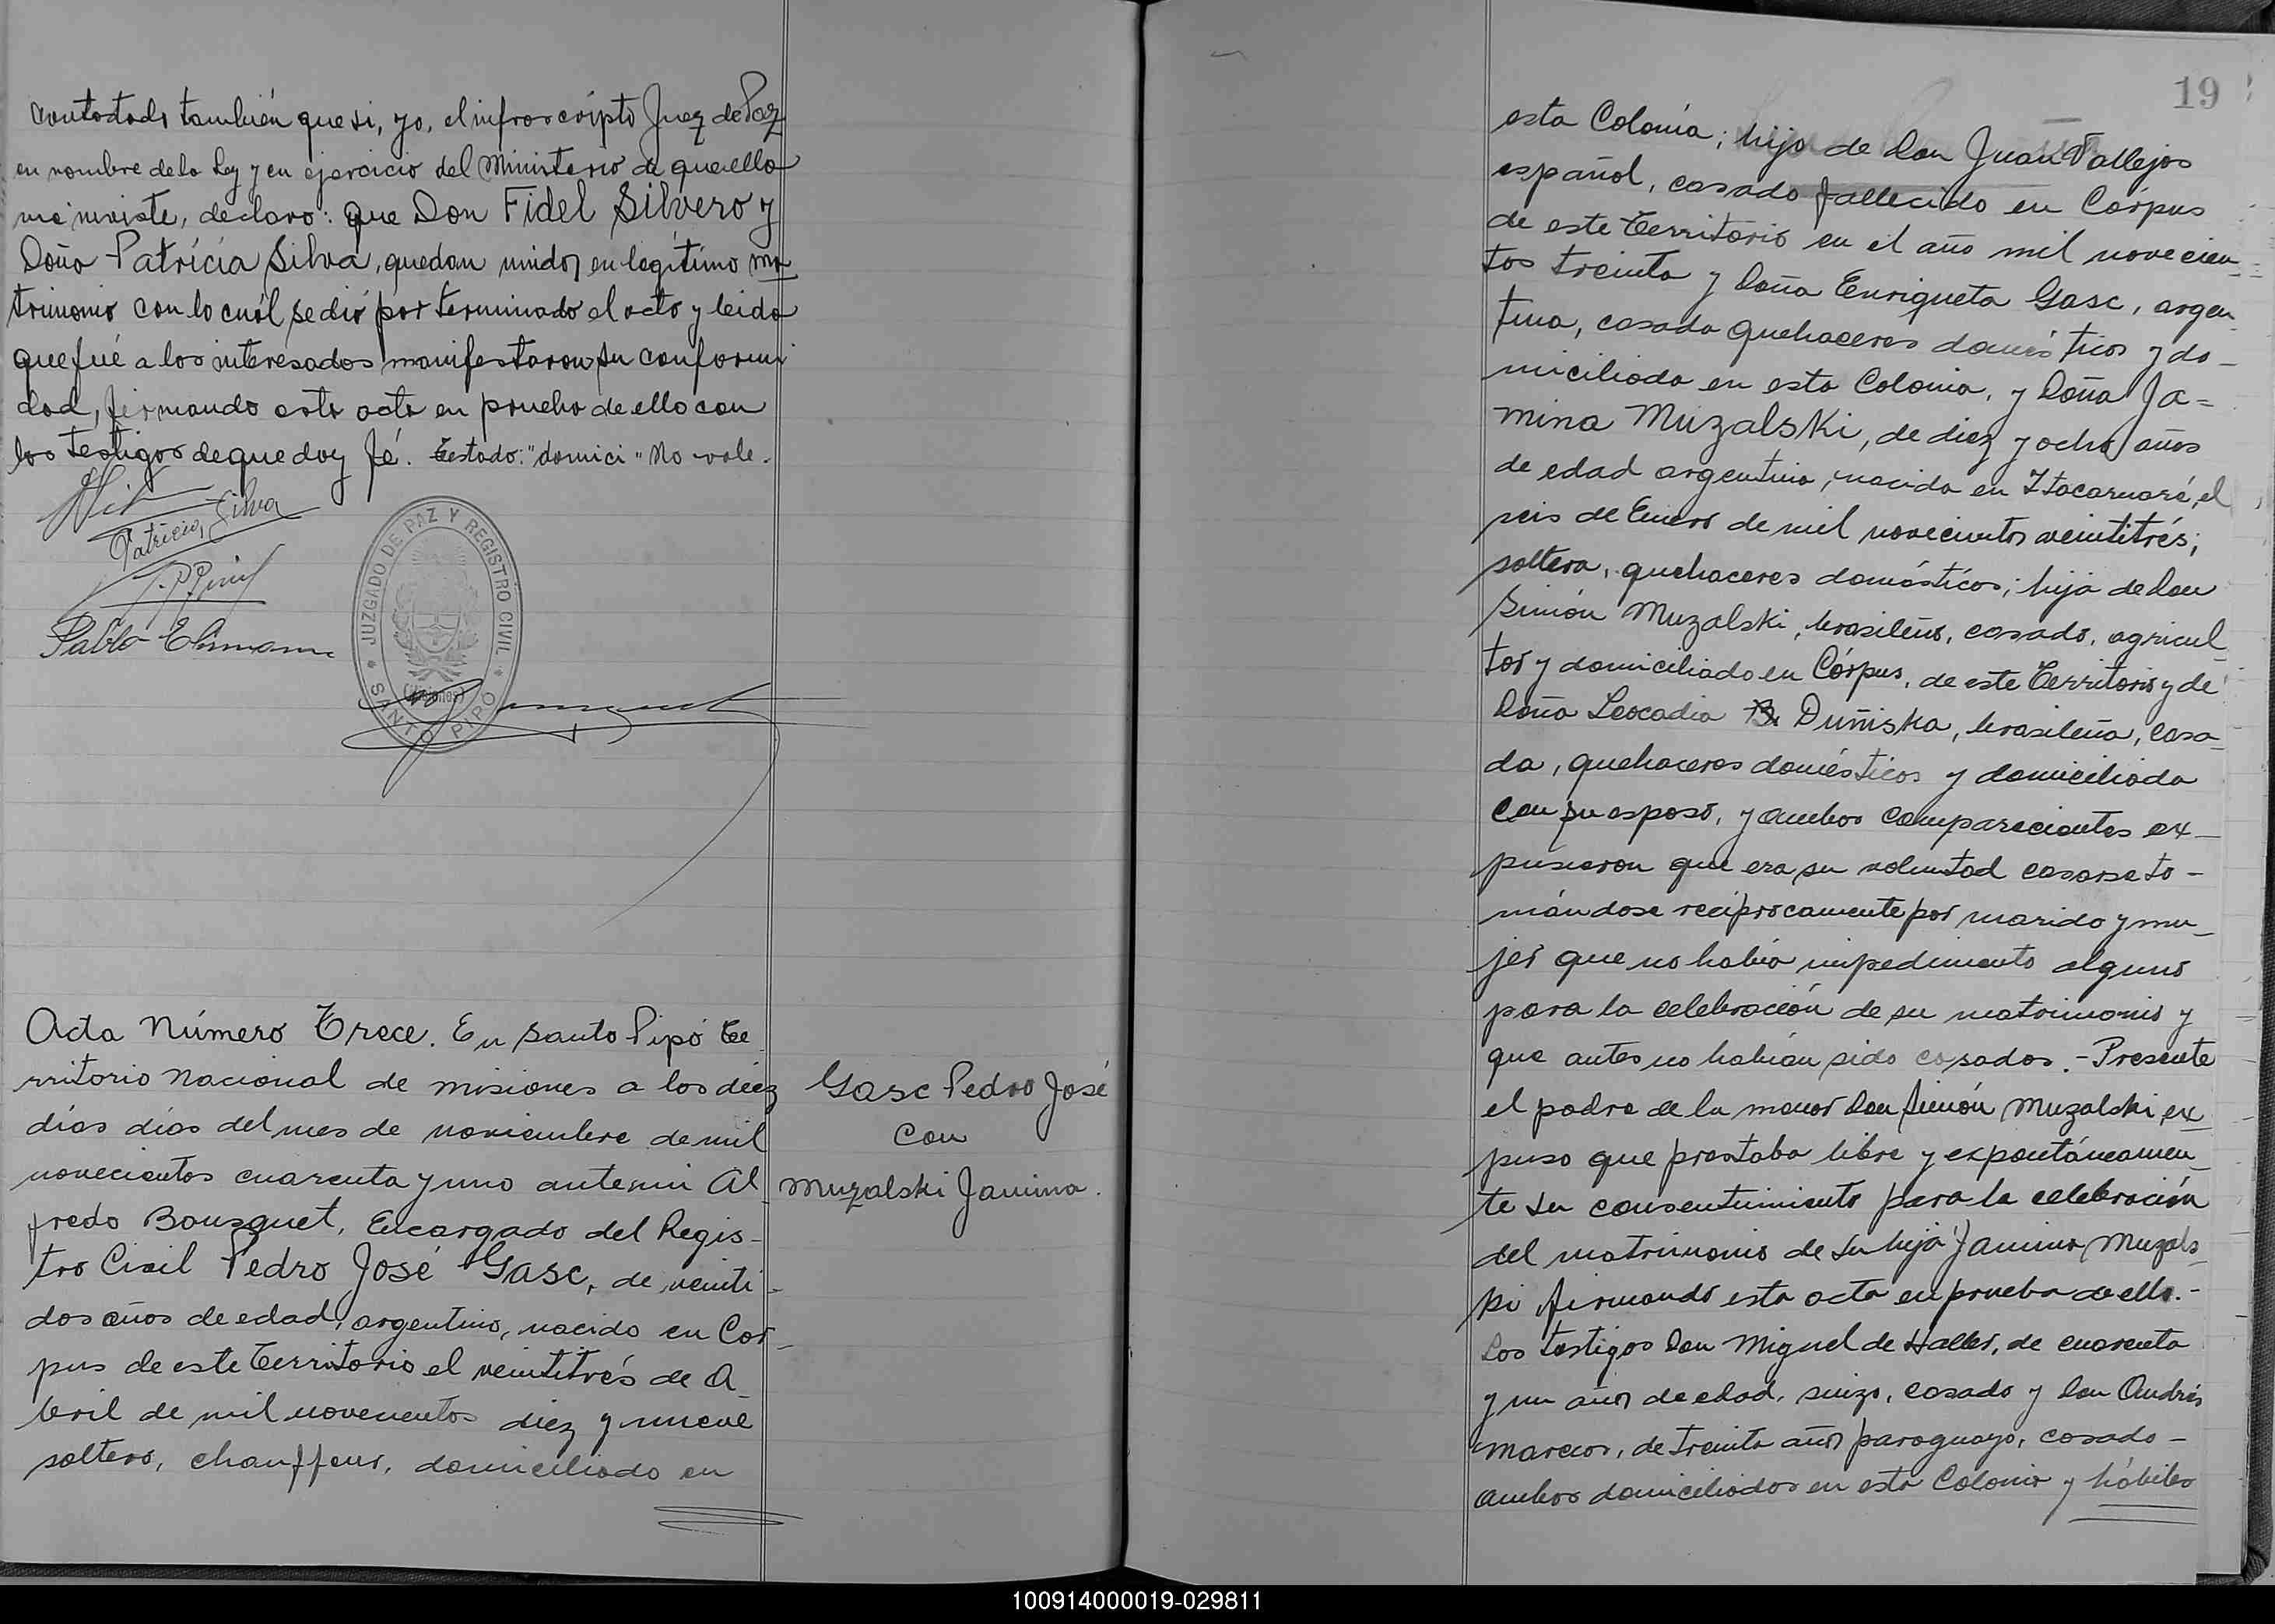 contestado también que si, yo, el infrascripto Juez de Paz
en nombre de la Ley y en ejercicio del Ministerio de que ella
me inviste, declaro: que Don Fidel Silvero y
Doña Patrícia Silva, quedan unidos en legítimo ma
trimonio con lo cuál se dió por terminado el acto y leida
que fué a los interesados manifestaron su conformi
dad, firmando esta acta en prueba de ello con
los testigos de que doy fé. Testado: "domici" No vale.
Patricia Silva
Pablo Ehmann
JUZGADO DE PAZ Y REGISTRO CIVIL
(Misiones)
SANTO PIPO
Acta Número Trece. En Santo Pipó Te
rritorio Nacional de misiones a los diéz
dias dias del mes de noviembre de mil
novecientos cuarenta y uno ante mi Al
fredo Bousquet, Encargado del Regis-
tro Civil Pedro José Gasc, de veinti-
dos años de edad, argentino, nacido en Cor-
pus de este Territorio el veintitrés de A
bril de mil novecientos diez y nueve
soltero, chauffeur, domiciliado en
Gasc Pedro José
con
Muzalski Jamina.
19
esta Colonia; hijo de Don Juan Vallejos
español, casado fallecido en Córpus
de este Territorio en el año mil novecien-
tos treinta y Doña Enriqueta Gasc, argen-
tina, casada quehaceres domésticos y do-
miciliada en esta Colonia, y Doña Ja=
mina Muzalski, de diez y ocho años
de edad argentina, nacida en Itacaruaré, el
seis de Enero de mil novecientos veintitrés;
soltera, quehaceres domésticos; hija de Don
Simón Muzalski, brasileño, casado, agricul-
tor y domiciliado en Córpus, de este Territorio y de
Doña Leocadia Duñiska, brasileña, casa-
da, quehaceres domésticos y domiciliada
con su esposo, y ambos comparecientes ex-
pusieron que era su voluntad casarse to-
mándose recíprocamente por marido y mu-
jer que no había impedimento alguno
para la celebración de su matrimonio y
que antes no habían sido casados.- Presente
el padre de la menor Don Simón Muzalski ex
puso que prestaba libre y expontáneamen-
te su consentimiento para la celebración
del matrimonio de su hija Jamina Muzals-
ki firmando esta acta en prueba de ello.-
Los testigos Don Miguel de Haller, de cuarenta
y un años de edad, suizo, casado y Don Andrés
Marecos, de treinta años paraguayo, casado-
ambos domiciliados en esta Colonia y hábiles
100914000019-029811